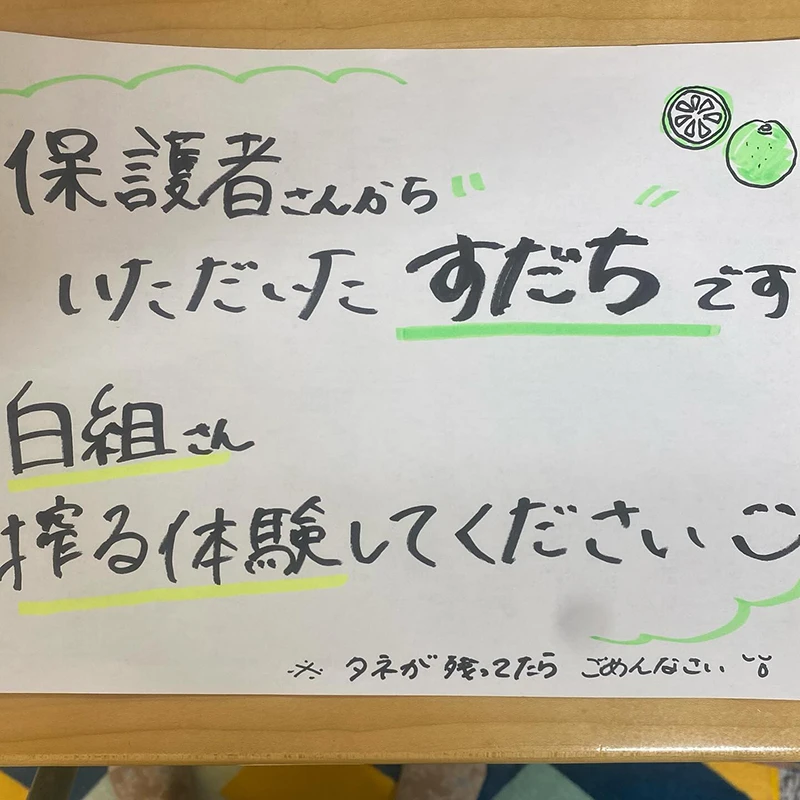 保護者さんから
いただいた すだち です
白組さん
搾る体験してください
※ タネが残ってたら ごめんなさい